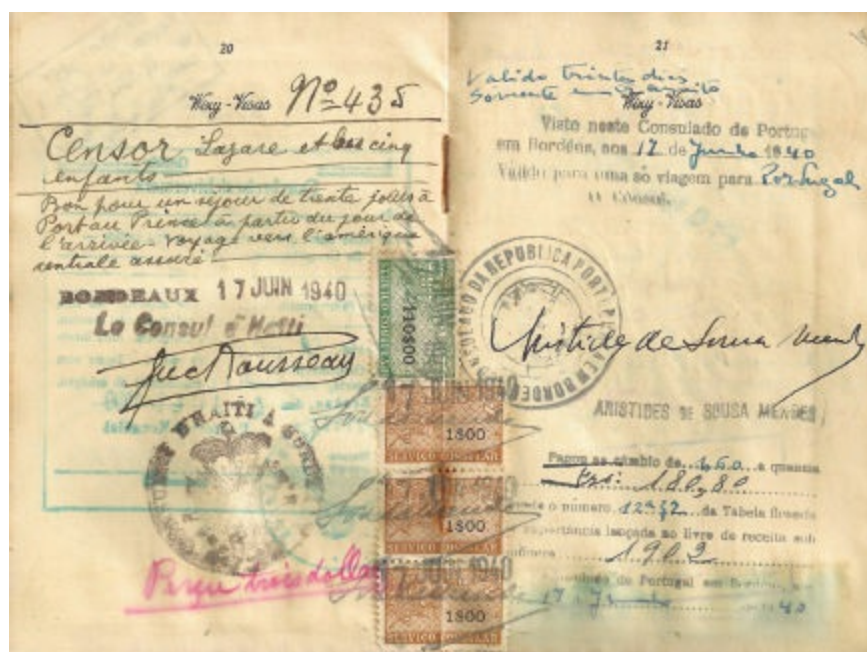 20
Wizy - Visas Nº 435
Censor Lazare et ses cinq
enfants
Bon pour un séjour de trente jours à
Port au Prince à partir du jour de
l'arrivée - voyage vers l'amérique
centrale assuré
BORDEAUX 17 JUIN 1940
Le Consul d'Haiti
D'HAITI A
Perçu trois dollars
110$00
17 JUIN 1940
1$00
17 JUIN 1940
1$00
SERVIÇO CONSULAR
17 JUIN 1940
1$00
SERVIÇO CONSULAR
21
Valido trinta dias
Somente em transito
Wizy - Visas
Visto neste Consulado de Portugal
em Bordéus, aos 17 de Junho 1940
Válido para uma só viagem para Portugal
O Cônsul,
CONSULADO DA REPUBLICA PORTUGUESA EM BORDEUS
Aristides de Sousa Mendes
ARISTIDES DE SOUSA MENDES
Pagou ao câmbio de a quantia
180,80
o número da Tabela
importância lançada no livro de receita sob
1902
de Portugal em
17 Junho 40